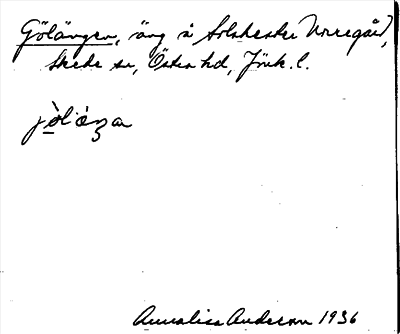 Gölängen, äng å Solskester Norregård,
Skede sn, Östra hd, Jönk. l.
jò̱lǻŋən
Annalisa Anderson 1936